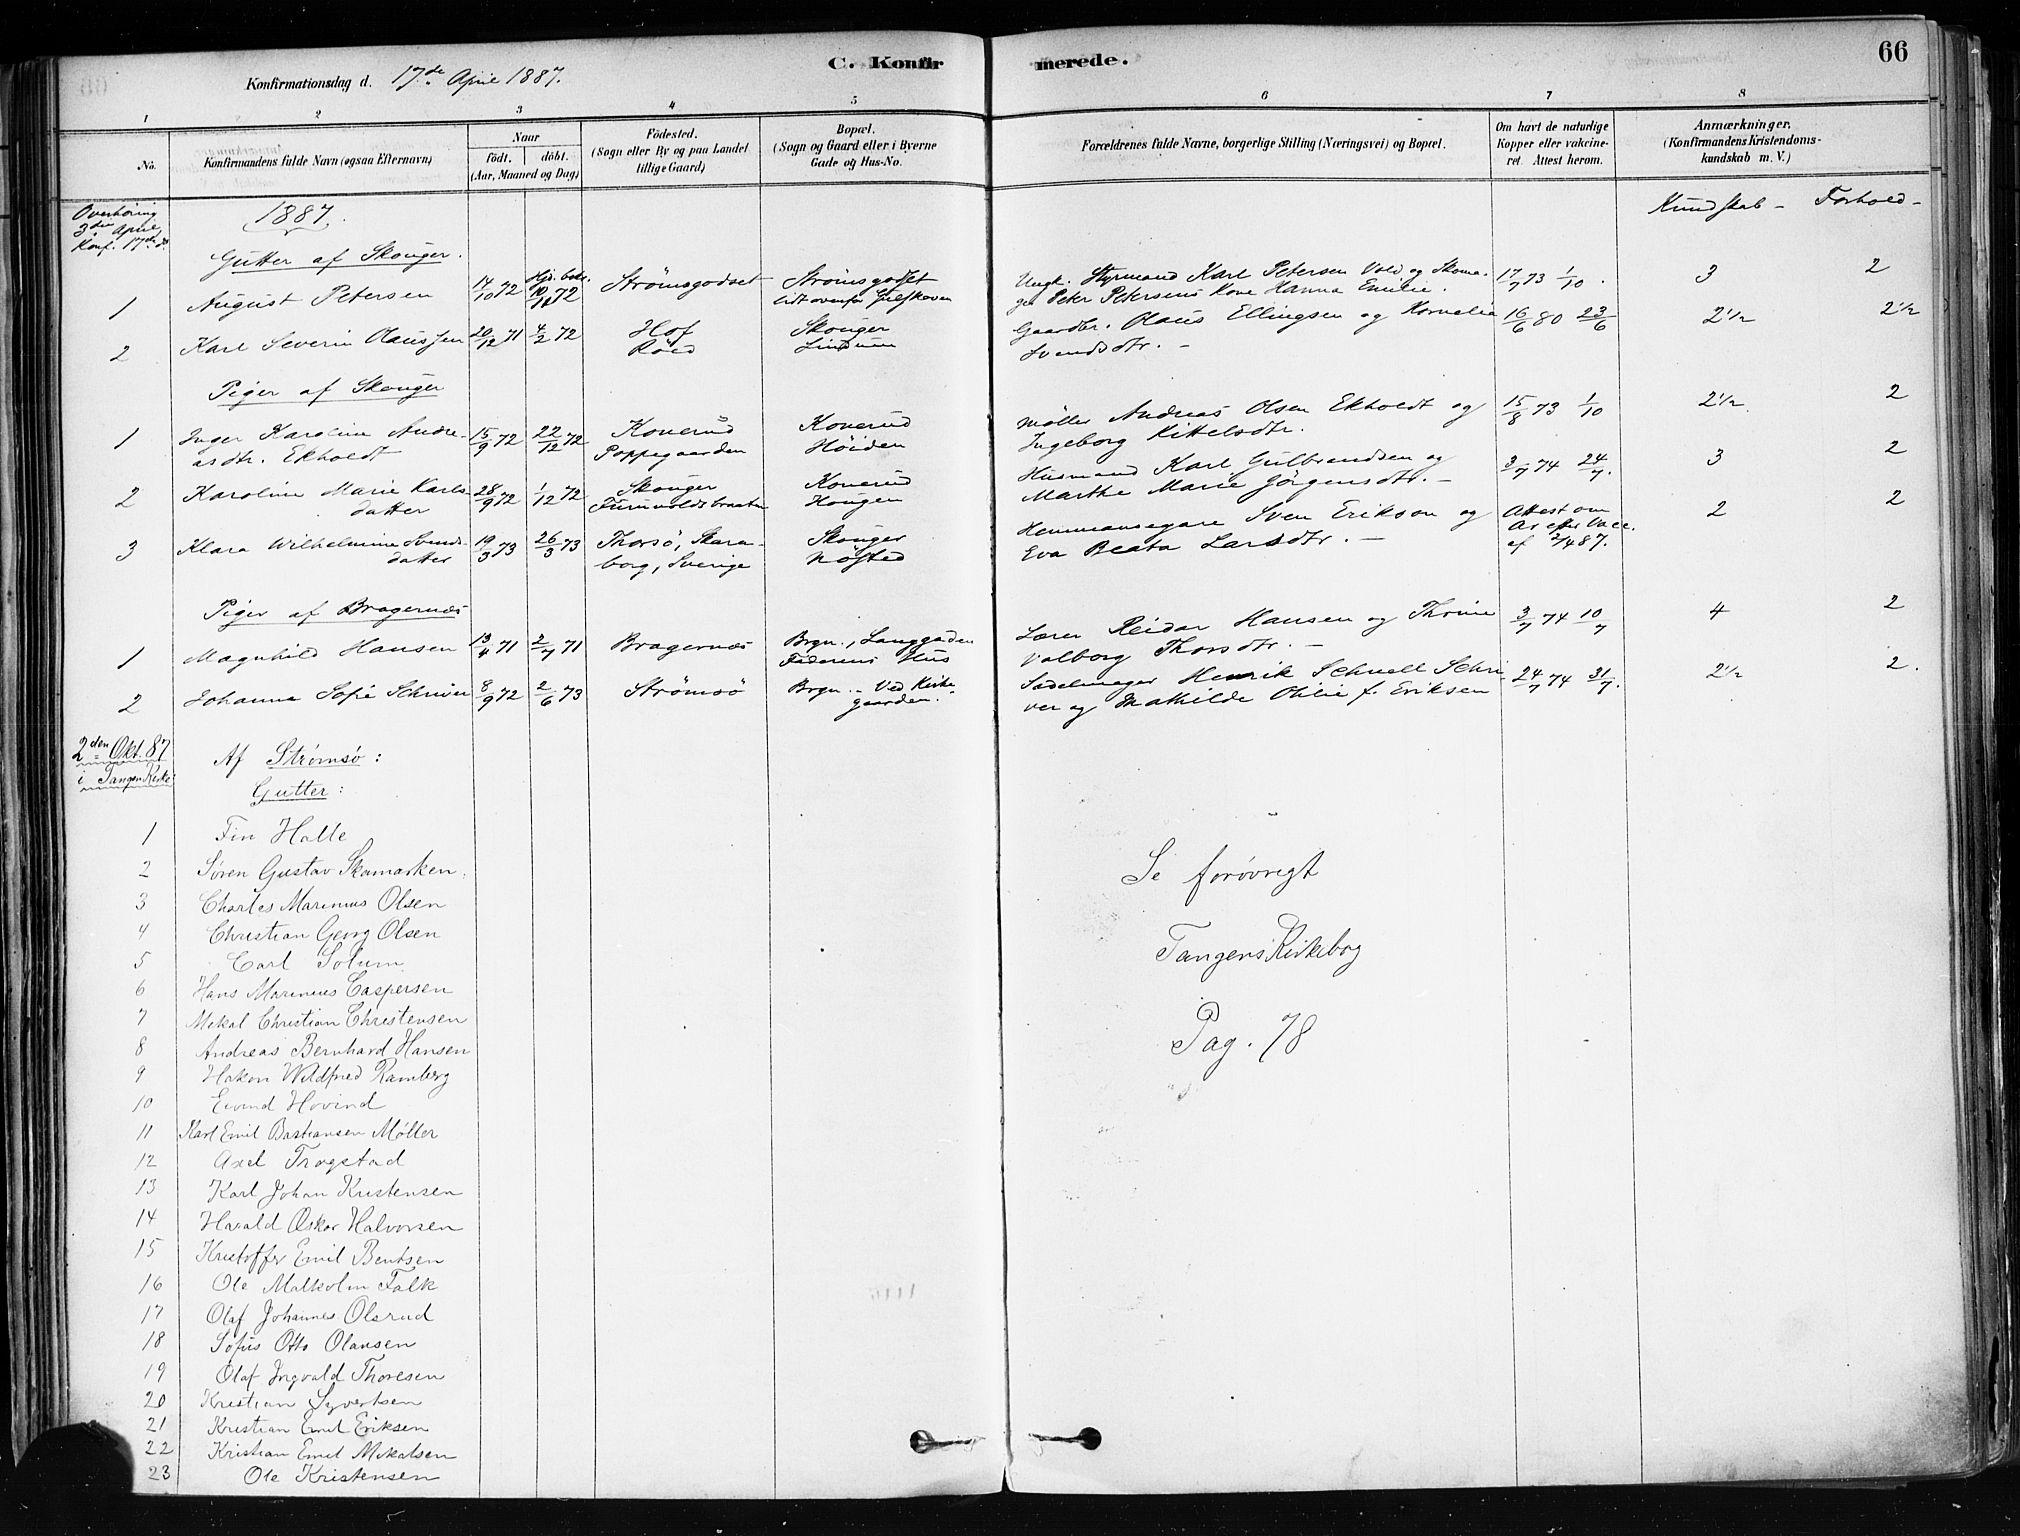 C. Konfirmerede.
66
Konfirmationsdag d. 17de April 1887.
1 2 3 4 5 6 7 8
No.
Konfirmandens fulde Navn (ogsaa Efternavn)
Naar
födt. döbt.
(Aar, Maaned og Dag)
Födested.
(Sogn eller By og paa Landet tillige Gaard)
Bopæl.
(Sogn og Gaard eller i Byerne Gade og Hus-No.
Forældrenes fulde Navne, borgerlige Stilling (Næringsvei) og Bopæl.
Om havt de naturlige Kopper eller vakcineret. Attest herom.
Anmærkninger.
(Konfirmandens Kristendomskundskab m. V.)
Overhöring 3die April, Konf. 17de ds.
1887.
Kundskab - Forhold -
Gutter af Skouger.
1 August Petersen 17/10 72 Hj. 10/11 72 Strömsgodset Strömsgodset lidt ovenfor Ungk. Styrmand Karl Petersen Vold og Skomager Peter Petersens Kone Hanna Emilie. 17/7 73 1/10. 3 2
2 Karl Severin Olaussen 20/12 71 4/2 72 Hof Röed Skouger Lindum Gaardbr. Olaus Ellingsen og Kornelia Svendsdtr. - 16/6 80 23/6 2 1/2 2 1/2
Piger af Skouger
1 Inger Karoline Andreasdtr. Ekholdt 15/9 72 22/12 72 Konerud Poppegaarden Konerud Höiden Möller Andreas Olsen Ekholdt og Ingeborg Kittelsdtr. 15/8 73 1/10 2 1/2 2
2 Karoline Marie Karlsdatter 28/9 72 1/12 72 Skouger Furuvoldsbraaten Konerud Hougen Husmand Karl Gulbrandsen og Marthe Marie Jörgensdtr. - 3/7 74 24/7. 3 2
3 Klara Wilhelmine Svendsdatter 19/3 73 26/3 73 Thorsö, Skaraborg, Sverige Skouger Nösted Hemmansegare Sven Erikson og Eva Beata Larsdtr. - Attest om Ar efter Vacc. af 2/4 87. 2 2
Piger af Bragernæs
1 Magnhild Hansen 13/4 71 2/7 71 Bragernæs Brgn., Langgaden Faderens Hus Lærer Reidar Hansen og Thrine Valborg Thorsdtr. - 3/7 74 10/7 4 2
2 Johanna Sofie Schriver 8/9 72 2/6 73 Strömsö Brgn. - Ved Kirkegaarden. Sadelmager Henrik Schnell Schriver og Mathilde Othilie f. Eriksen 24/7 74 31/7. 2 1/2 2.
2den Okt. 87 i Tangen Kirke
Af Strømsø:
Gutter:
1 Fin Halle
2 Søren Gustav Skamarken.
3 Charles Marinius Olsen
4 Christian Georg Olsen
5 Carl Solum
6 Hans Marinius Caspersen
7 Mikal Christian Christensen
8 Andreas Bernhard Hansen
9 Hakon Wildfred Ramberg
10 Eivind Hovind
11 Karl Emil Bastiansen Møller
12 Axel Trøgstad
13 Karl Johan Kristensen
14 Harald Oskar Halvorsen
15 Kristoffer Emil Bentsen
16 Ole Malkolm Falk
17 Olaf Johannes Olsrud
18 Sofus Otto Olausen
19 Olaf Ingvald Thoresen
20 Kristian Syvertsen
21 Kristian Emil Eriksen
22 Kristian Emil Mikalsen
23 Ole Kristensen
Se forøvrigt
Tangens Kirkebog
Pag. 78